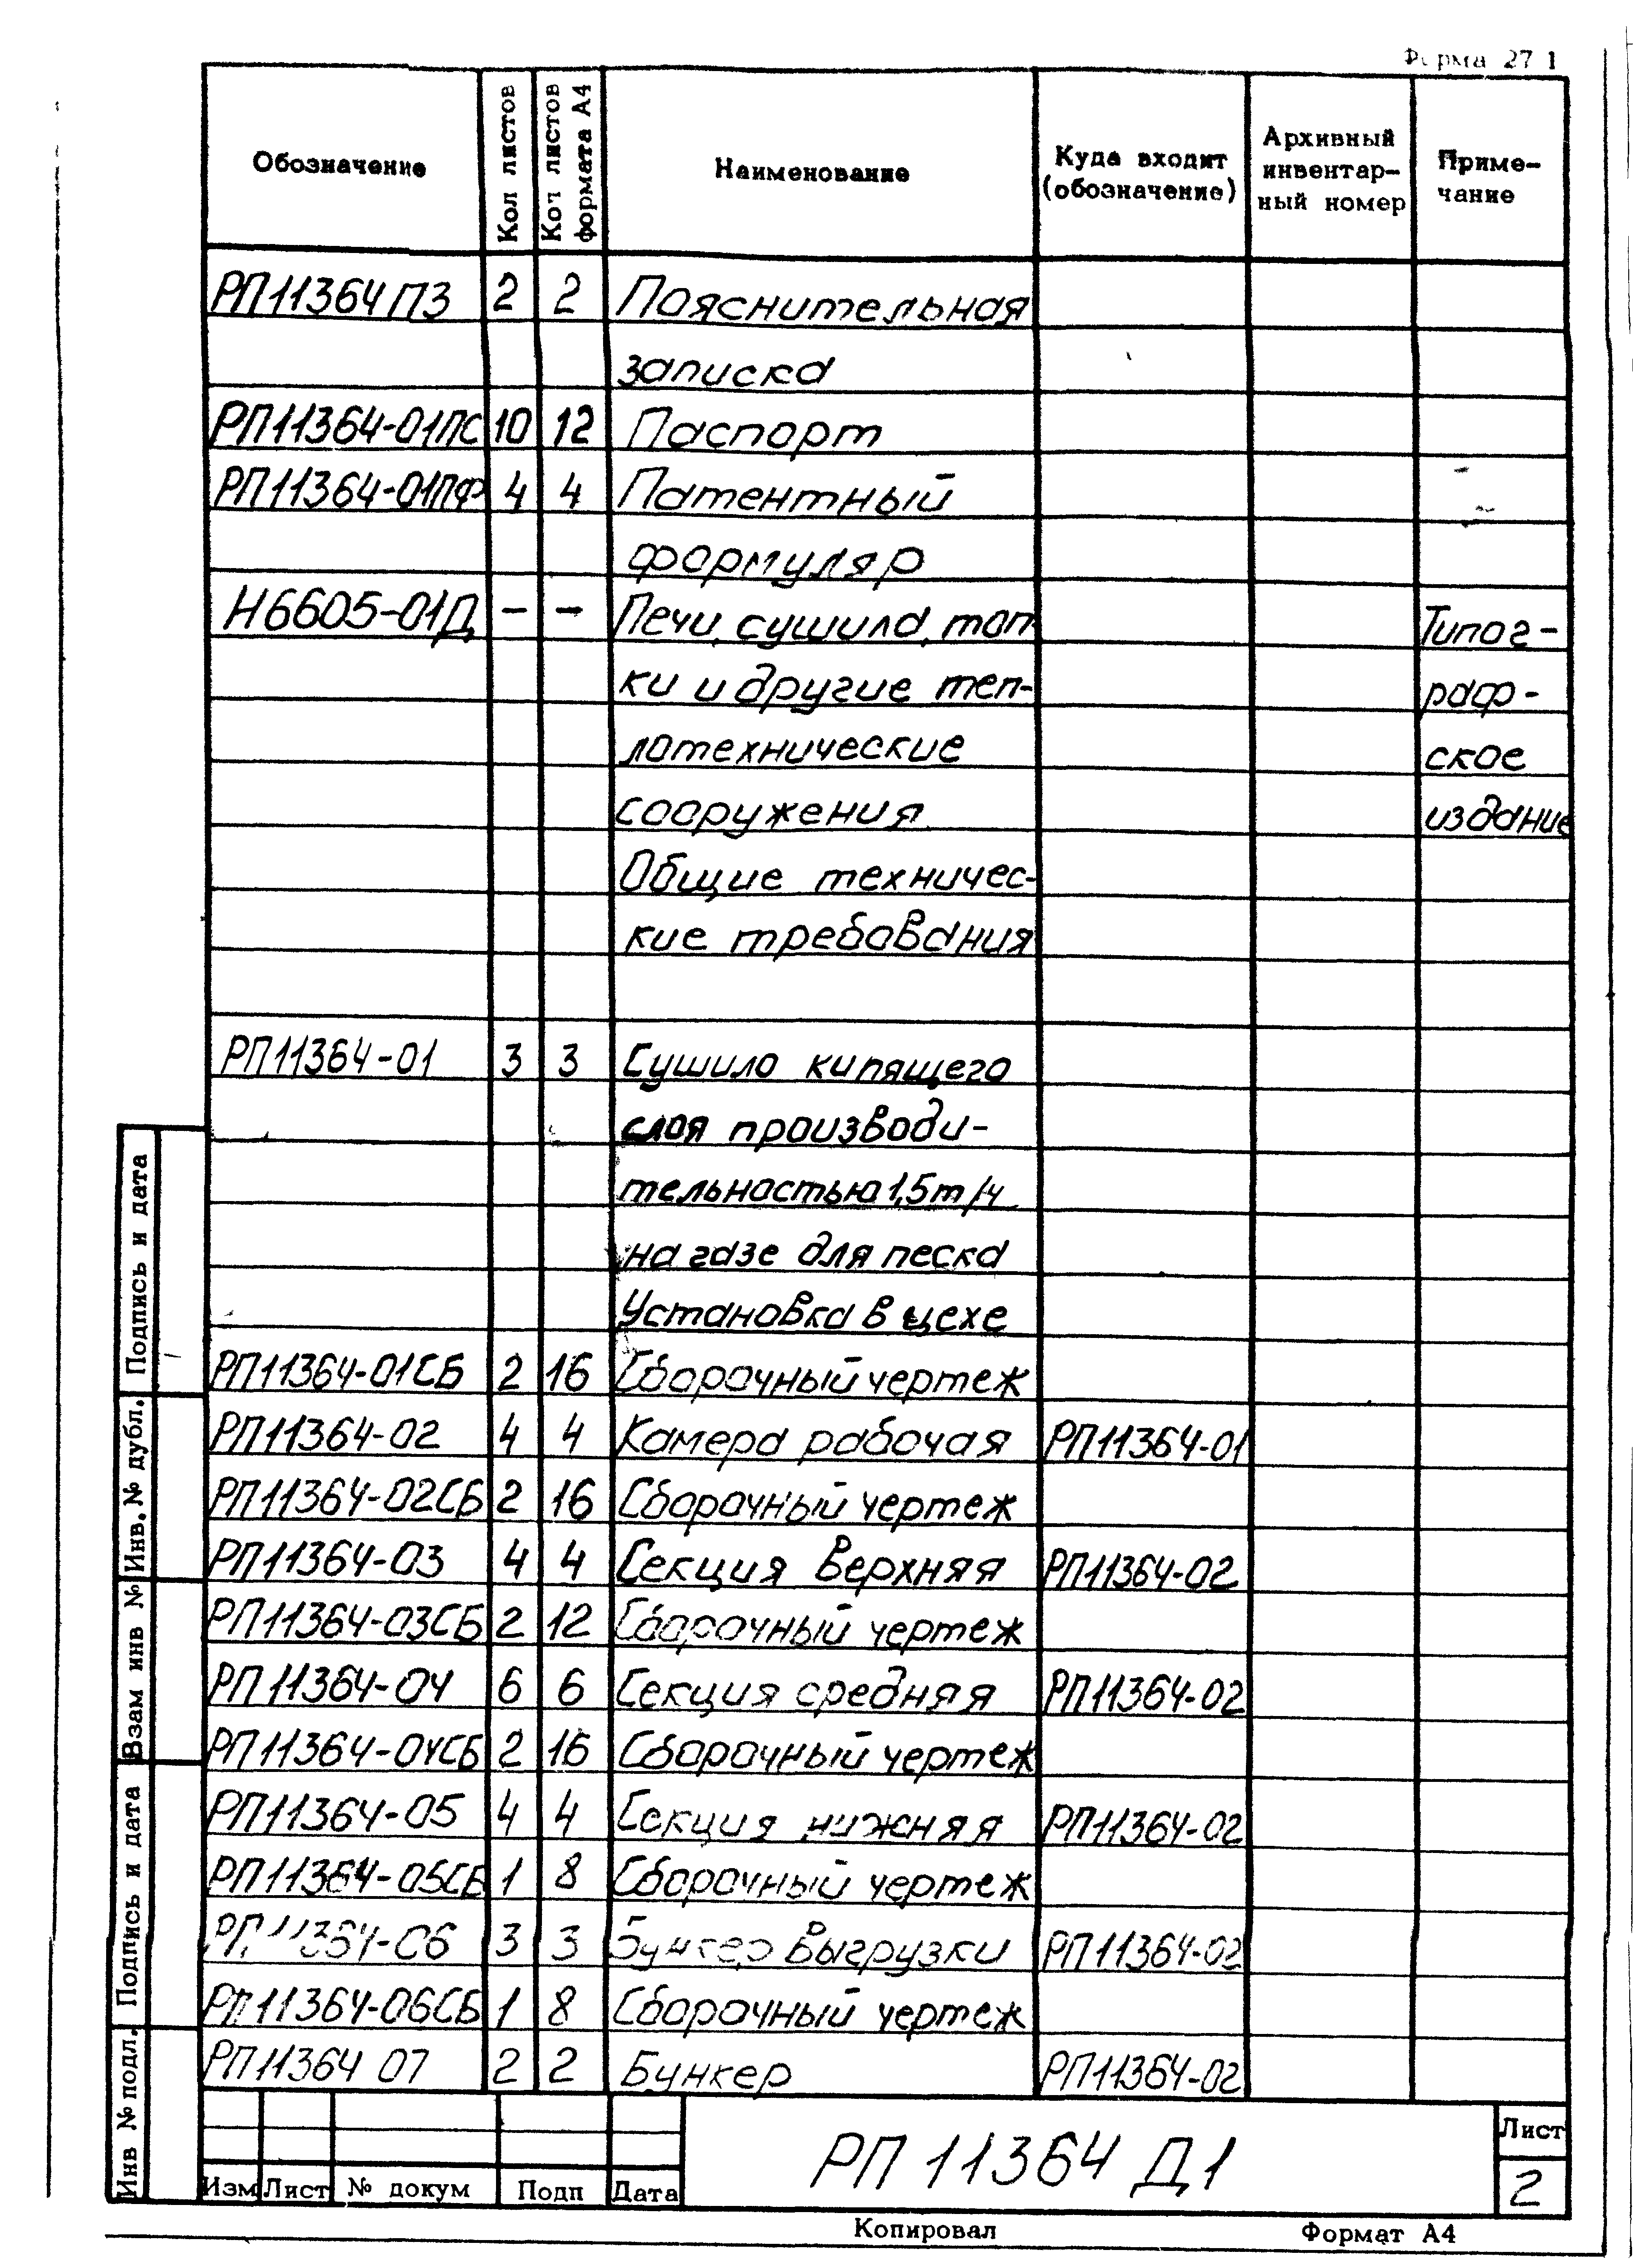 Форма 27 1
Обозначение Кол листов Кол листов формата А4 Наименование Куда входит (обозначение) Архивный инвентар- ный номер Приме- чание
РП11364ПЗ 2 2 Пояснительная
записка
РП11364-01ПС 10 12 Паспорт
РП11364-01ПФ 4 4 Патентный
формуляр
Н6605-01Д - - Печи, сушила, топ Типог-
ки и другие теп- раф-
лотехнические ское
сооружения издание
Общие техничес-
кие требования
РП11364-01 3 3 Сушило кипящего
слоя производи-
тельностью 1,5т/ч
на газе для песка
Установка в цехе
РП11364-01СБ 2 16 Сборочный чертеж
РП11364-02 4 4 Камера рабочая РП11364-01
РП11364-02СБ 2 16 Сборочный чертеж
РП11364-03 4 4 Секция верхняя РП11364-02
РП11364-03СБ 2 12 Сборочный чертеж
РП11364-04 6 6 Секция средняя РП11364-02
РП11364-04СБ 2 16 Сборочный чертеж
РП11364-05 4 4 Секция нижняя РП11364-02
РП11364-05СБ 1 8 Сборочный чертеж
РП11364-06 3 3 Бункер выгрузки РП11364-02
РП11364-06СБ 1 8 Сборочный чертеж
РП11364 07 2 2 Бункер РП11364-02
Подпись и дата
Инв. № дубл.
Взам инв №
Подпись и дата
Инв № подл.
Изм Лист № докум Подп Дата
РП 11364 Д1
Лист
2
Копировал Формат А4